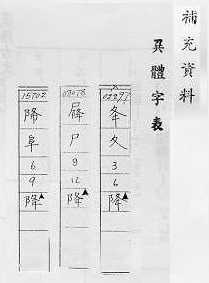 補充資料
異體字表
夅
夂
3
6
降▲
尸
9
12
降▲
15702
阜
6
9
降▲